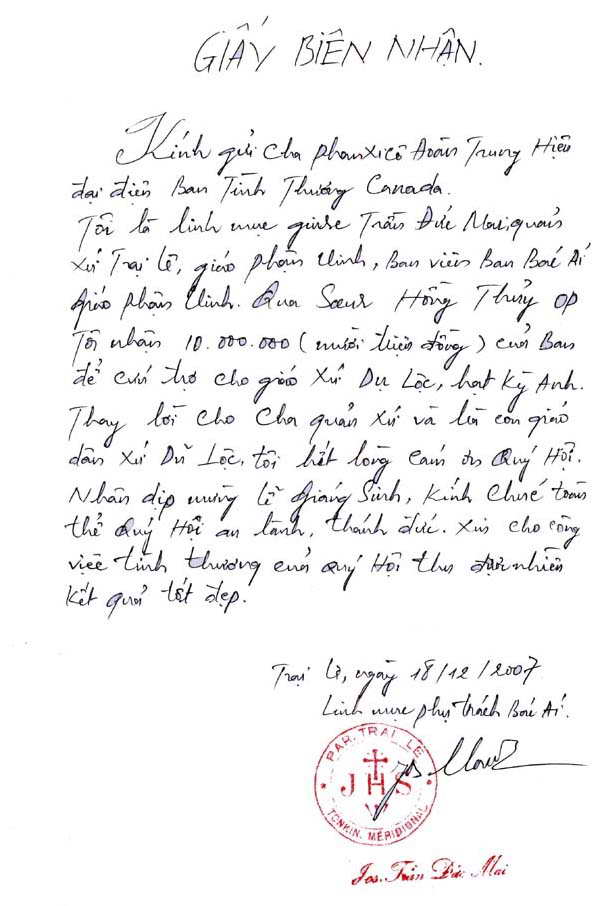 GIẤY BIÊN NHẬN.
Kính gửi Cha Phanxicô Đoàn Trung Hiệu
đại diện Ban Tình Thương Canada.
Tôi là linh mục giuse Trần Đức Mai, quản
xứ Trại Lê, giáo phận Vinh, Ban viên Ban Bác Ái
giáo phận Vinh. Qua Sœur Hồng Thủy OP
Tôi nhận 10.000.000 (mười triệu đồng) của Ban
để cứu trợ cho giáo xứ Dụ Lộc, hạt Kỳ Anh.
Thay lời cho Cha quản xứ và bà con giáo
dân xứ Dụ Lộc, tôi hết lòng cám ơn Quý Hội.
Nhân dịp mừng lễ Giáng Sinh, Kính Chúc toàn
thể Quý Hội an lành, thánh đức. Xin cho công
việc tình thương của quý Hội thu được nhiều
kết quả tốt đẹp.
Trại Lê, ngày 18/12/2007
Linh mục phụ trách Bác Ái.
PAR. TRAI LÊ
JHS
TONKIN. MÉRIDIONAL
Jos. Trần Đức Mai